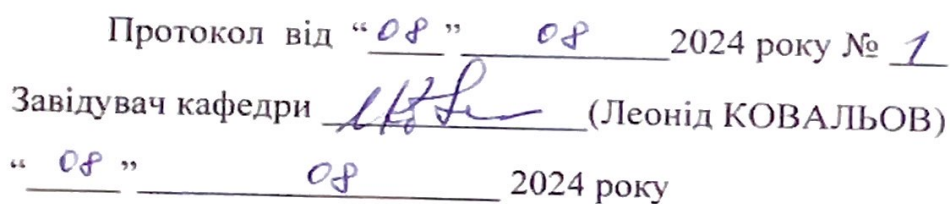 Протокол від “08” 08 2024 року № 1
Завідувач кафедри (Леонід КОВАЛЬОВ)
“08” 08 2024 року